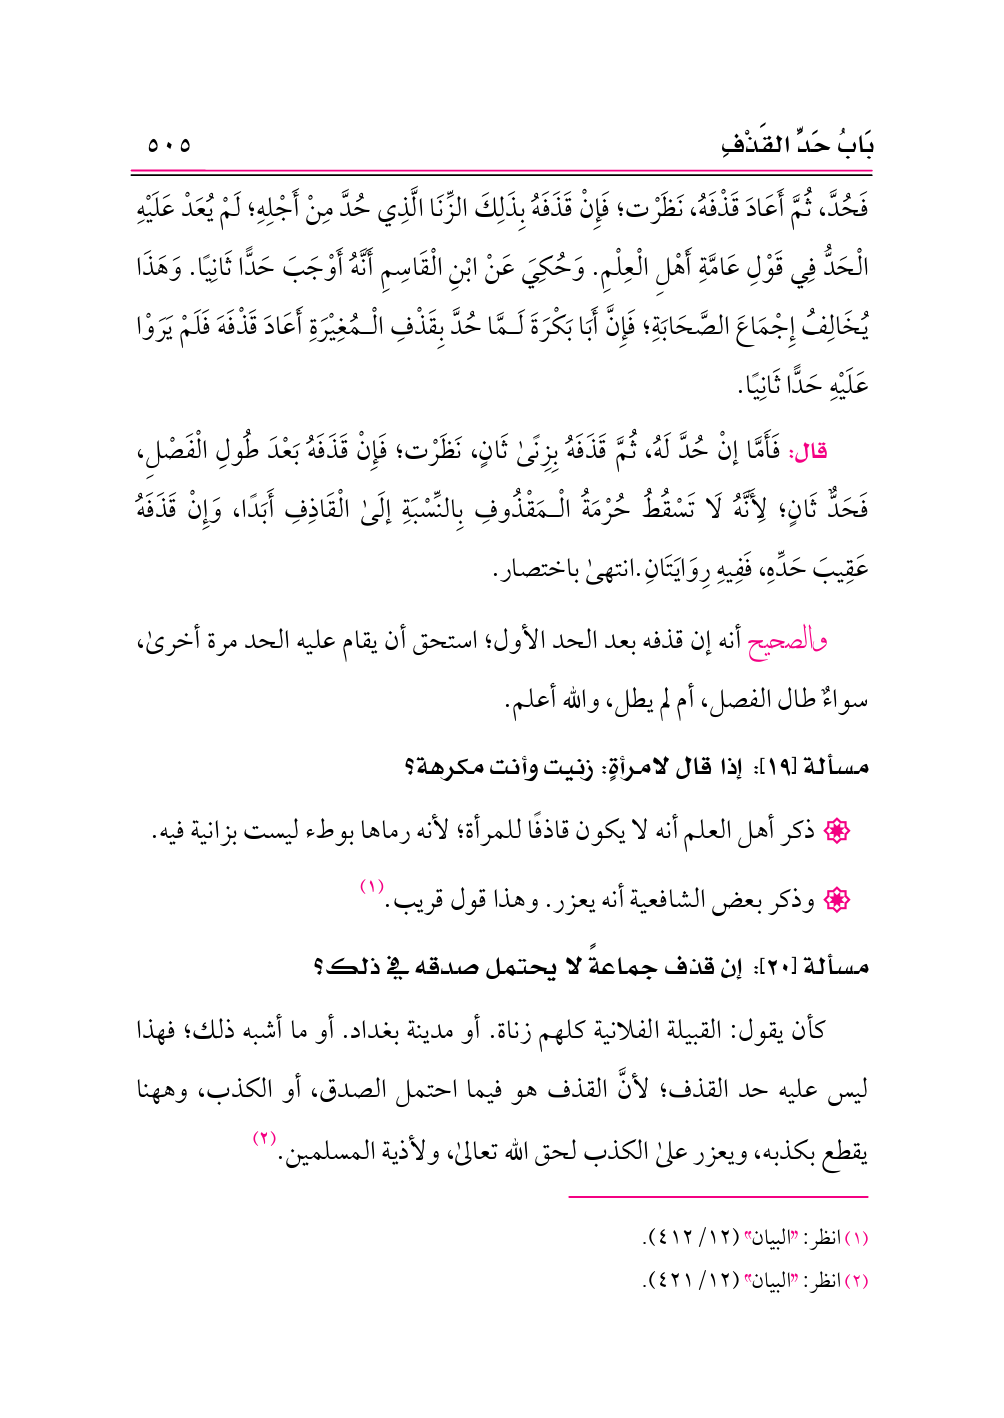 بَابُ حَدِّ القَذْفِ ٥٠٥
فَحُدَّ، ثُمَّ أَعَادَ قَذْفَهُ، نَظَرْت؛ فَإِنْ قَذَفَهُ بِذَلِكَ الزِّنَا الَّذِي حُدَّ مِنْ أَجْلِهِ؛ لَمْ يُعَدْ عَلَيْهِ
الْحَدُّ فِي قَوْلِ عَامَّةِ أَهْلِ الْعِلْمِ. وَحُكِيَ عَنْ ابْنِ الْقَاسِمِ أَنَّهُ أَوْجَبَ حَدًّا ثَانِيًا. وَهَذَا
يُخَالِفُ إجْمَاعَ الصَّحَابَةِ؛ فَإِنَّ أَبَا بَكْرَةَ لَـمَّا حُدَّ بِقَذْفِ الْـمُغِيْرَةِ أَعَادَ قَذْفَهَ فَلَمْ يَرَوْا
عَلَيْهِ حَدًّا ثَانِيًا.
قال: فَأَمَّا إنْ حُدَّ لَهُ، ثُمَّ قَذَفَهُ بِزِنًىٰ ثَانٍ، نَظَرْت؛ فَإِنْ قَذَفَهُ بَعْدَ طُولِ الْفَصْلِ،
فَحَدٌّ ثَانٍ؛ لِأَنَّهُ لَا تَسْقُطُ حُرْمَةُ الْـمَقْذُوفِ بِالنِّسْبَةِ إلَىٰ الْقَاذِفِ أَبَدًا، وَإِنْ قَذَفَهُ
عَقِيبَ حَدِّهِ، فَفِيهِ رِوَايَتَانِ.انتهىٰ باختصار.
والصحيح أنه إن قذفه بعد الحد الأول؛ استحق أن يقام عليه الحد مرة أخرىٰ،
سواءٌ طال الفصل، أم لم يطل، والله أعلم.
مسألة [١٩]: إذا قال لامرأةٍ: زنيت وأنت مكرهة؟
ذكر أهل العلم أنه لا يكون قاذفًا للمرأة؛ لأنه رماها بوطء ليست بزانية فيه.
وذكر بعض الشافعية أنه يعزر. وهذا قول قريب.(١)
مسألة [٢٠]: إن قذف جماعةً لا يحتمل صدقه في ذلك؟
كأن يقول: القبيلة الفلانية كلهم زناة. أو مدينة بغداد. أو ما أشبه ذلك؛ فهذا
ليس عليه حد القذف؛ لأنَّ القذف هو فيما احتمل الصدق، أو الكذب، وههنا
يقطع بكذبه، ويعزر علىٰ الكذب لحق الله تعالىٰ، ولأذية المسلمين.(٢)
(١) انظر: "البيان" (١٢/ ٤١٢).
(٢) انظر: "البيان" (١٢/ ٤٢١).